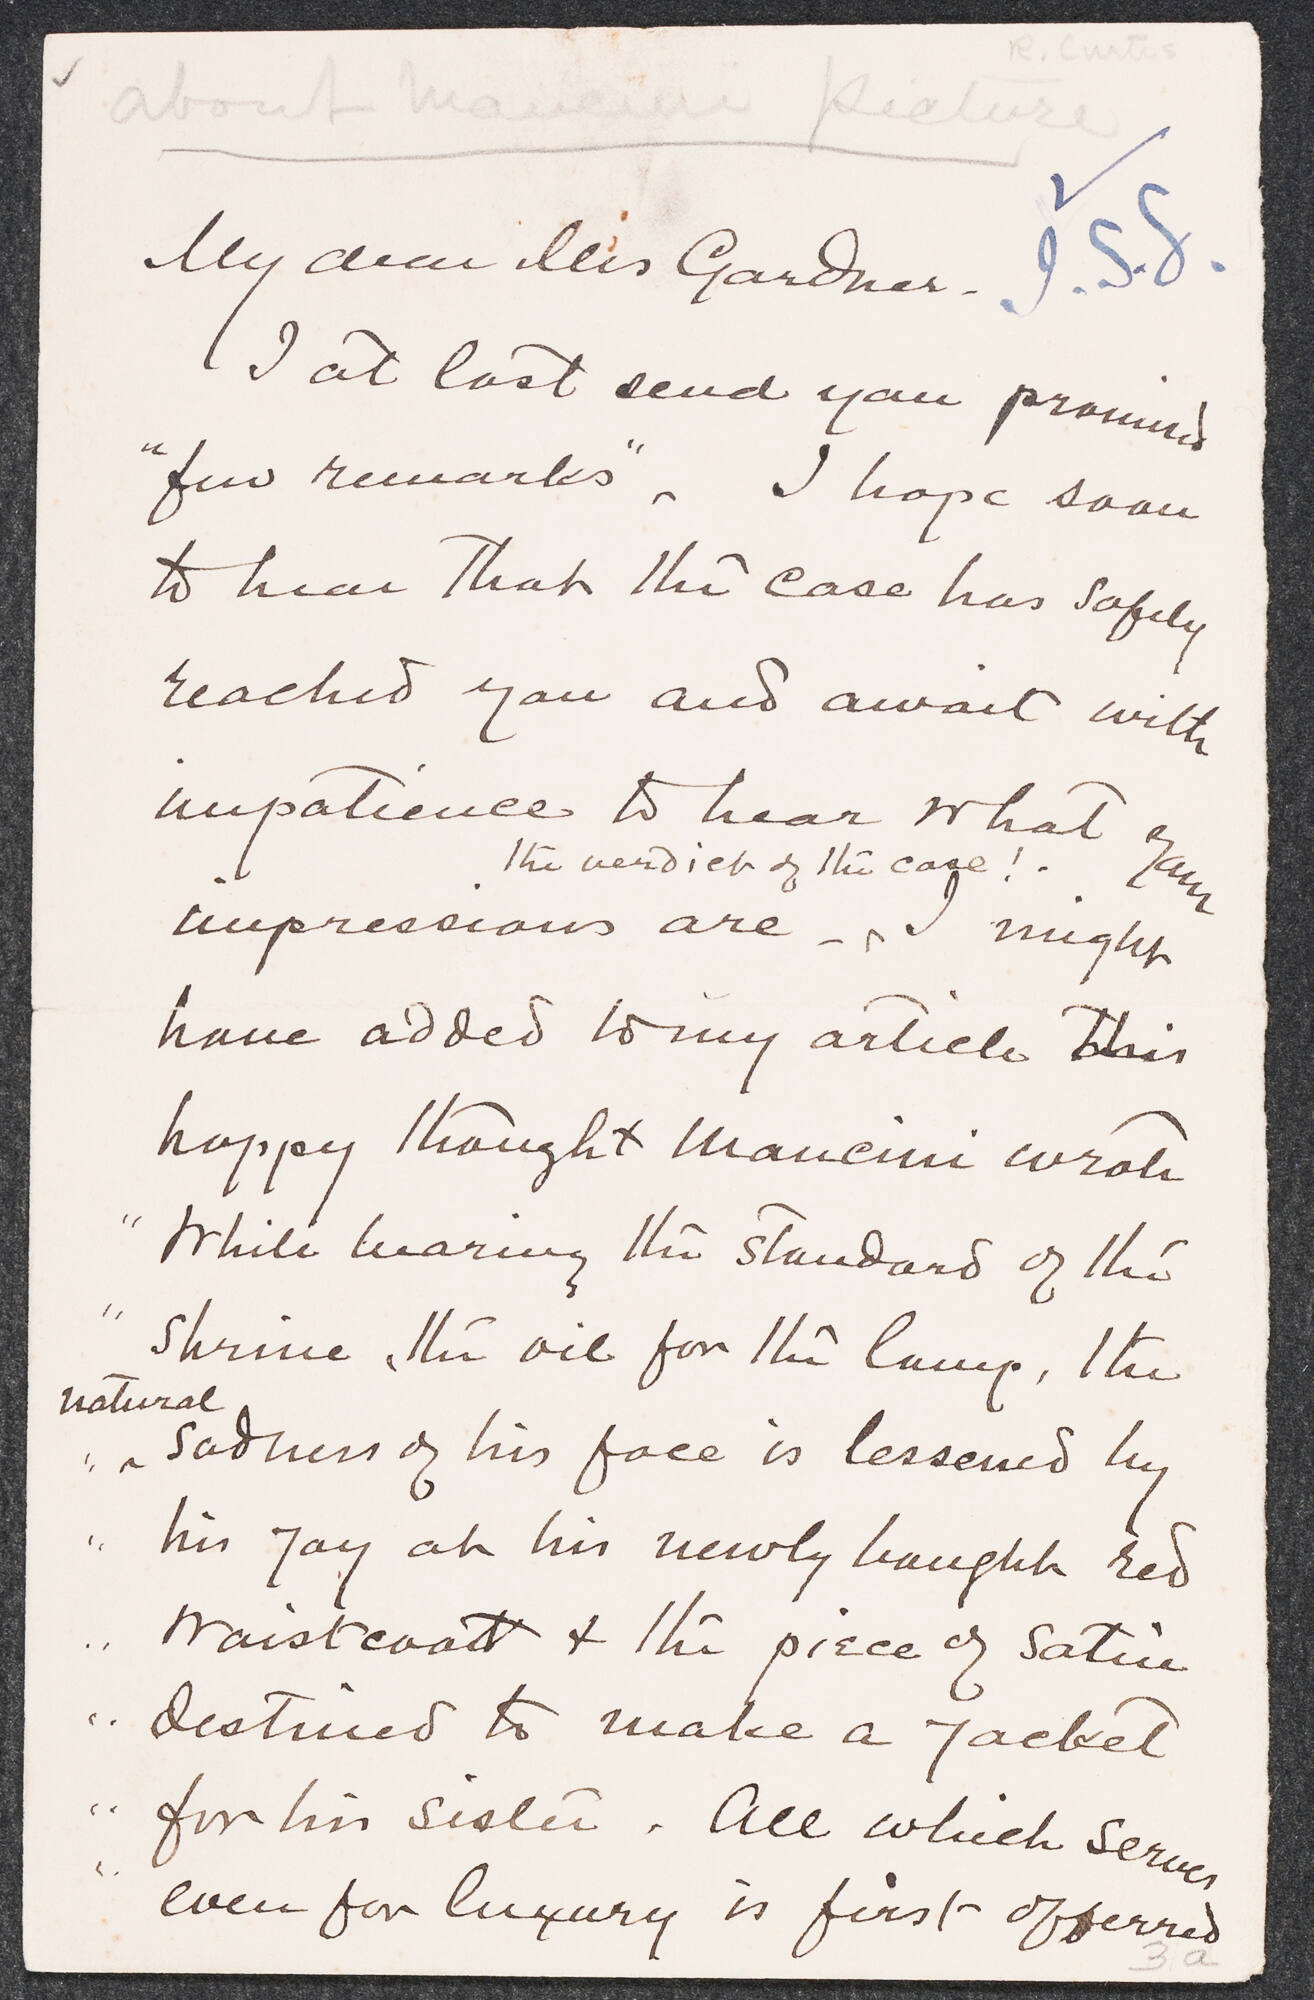 R. Curtis
about Mancini Picture
My dear Mrs Gardner -
I.S.G.
I at last send you promised
"few remarks" - I hope soon
to hear that the case has safely
reached you and await with
impatience to hear what your
the verdict of the case!
impressions are - I might
have added to my article this
happy thought Mancini wrote
" While bearing the standard of the
" shrine, the oil for the lamp, the
natural
" sadness of his face is lessened by
" his joy at his newly bought red
" waistcoat & the piece of satin
" destined to make a jacket
" for his sister. All which serves
" even for luxury is first offerred
3a